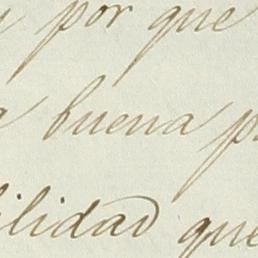 y por que
buena p
ilidad que